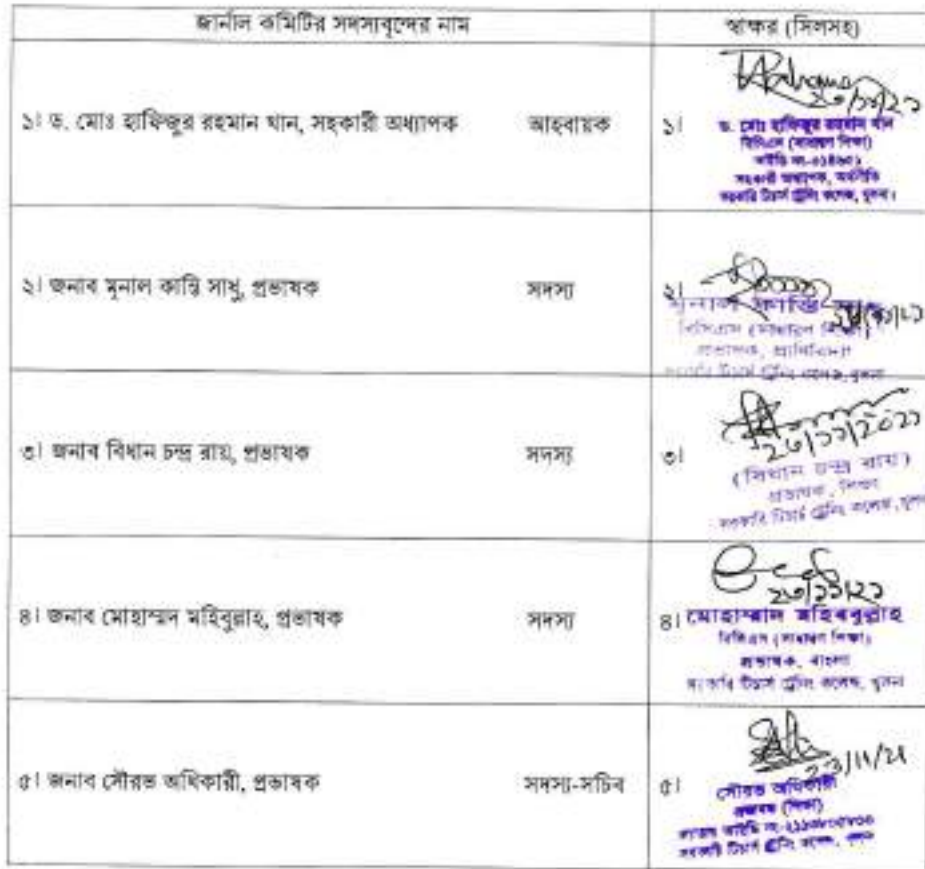 জার্নাল কমিটির সদস্যবৃন্দের নাম
স্বাক্ষর (সিলসহ)
১। ড. মোঃ হাফিজুর রহমান খান, সহকারী অধ্যাপক আহবায়ক
১।
ড. মোঃ হাফিজুর রহমান খান
বিসিএস (সাধারণ শিক্ষা)
সহকারী অধ্যাপক, অর্থনীতি
সরকারি টিচার্স ট্রেনিং কলেজ, খুলনা।
২। জনাব মৃনাল কান্তি সাধু, প্রভাষক সদস্য
২।
বিসিএস (সাধারণ শিক্ষা)
প্রভাষক, প্রাণিবিদ্যা
সরকারি টিচার্স ট্রেনিং কলেজ, খুলনা
৩। জনাব বিধান চন্দ্র রায়, প্রভাষক সদস্য
৩।
(বিধান চন্দ্র রায়)
প্রভাষক, শিক্ষা
সরকারি টিচার্স ট্রেনিং কলেজ, খুলনা
৪। জনাব মোহাম্মদ মহিবুল্লাহ, প্রভাষক সদস্য
৪।
মোহাম্মদ মহিববুল্লাহ
বিসিএস (সাধারণ শিক্ষা)
প্রভাষক, বাংলা
সরকারি টিচার্স ট্রেনিং কলেজ, খুলনা
৫। জনাব সৌরভ অধিকারী, প্রভাষক সদস্য-সচিব
৫।
23/11/21
সৌরভ অধিকারী
প্রভাষক (শিক্ষা)
সরকারি টিচার্স ট্রেনিং কলেজ, খুলনা